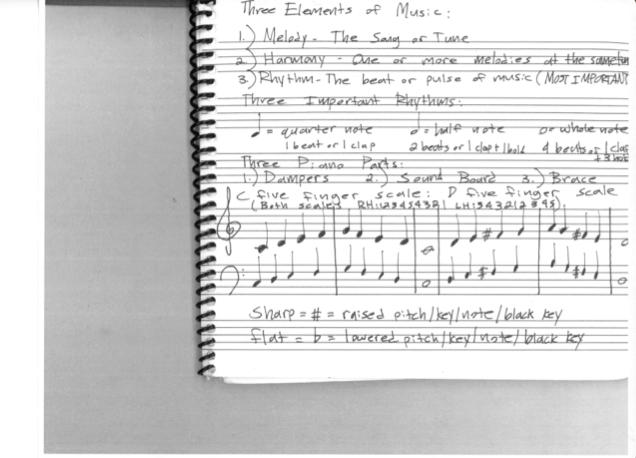 Three Elements of Music:
1.) Melody - The Song or Tune
2.) Harmony - One or more melodies at the same
3.) Rhythm - The beat or pulse of music (MOST IMPORTANT
Three Important Rhythms:
♩ = quarter note 𝅗𝅥 = half note o = whole note
1 beat or 1 clap 2 beats or 1 clap + 1 hold 4 beats or 1 clap
+ 3
Three Piano Parts:
1.) Dampers 2.) Sound Board 3.) Brace
C five finger scale: D five finger scale
(Both scales RH: 123454321 LH:
Sharp = # = raised pitch/key/note/black key
flat = b = lowered pitch/key/note/black key